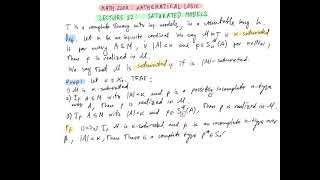 MATH 220A MATHEMATICAL LOGIC
LECTURE 22: SATURATED MODELS
T is a complete theory with inf. models, in a countable lang. L.
Def. Let κ be an infinite cardinal. We say M ⊨ T is κ-saturated
if for every A ⊆ M, if |A| < κ and p ∈ S_n^M(A) for n∈ℕ,
then p is realized in M.
We say that M is saturated if it is |M|-saturated.
Prop: Let κ ≥ ℵ₀. TFAE:
1) M is κ-saturated.
2) If A ⊆ M with |A| < κ and p is a possibly incomplete n-type
over A, then p is realized in M.
3) If A ⊆ M with |A| < κ and p ∈ S_1^M(A), then p is realized in M.
Pf. 1)⇒2) If M is κ-saturated and p is an incomplete n-type over
A, |A| < κ, then there is a complete type p* ∈ S_n